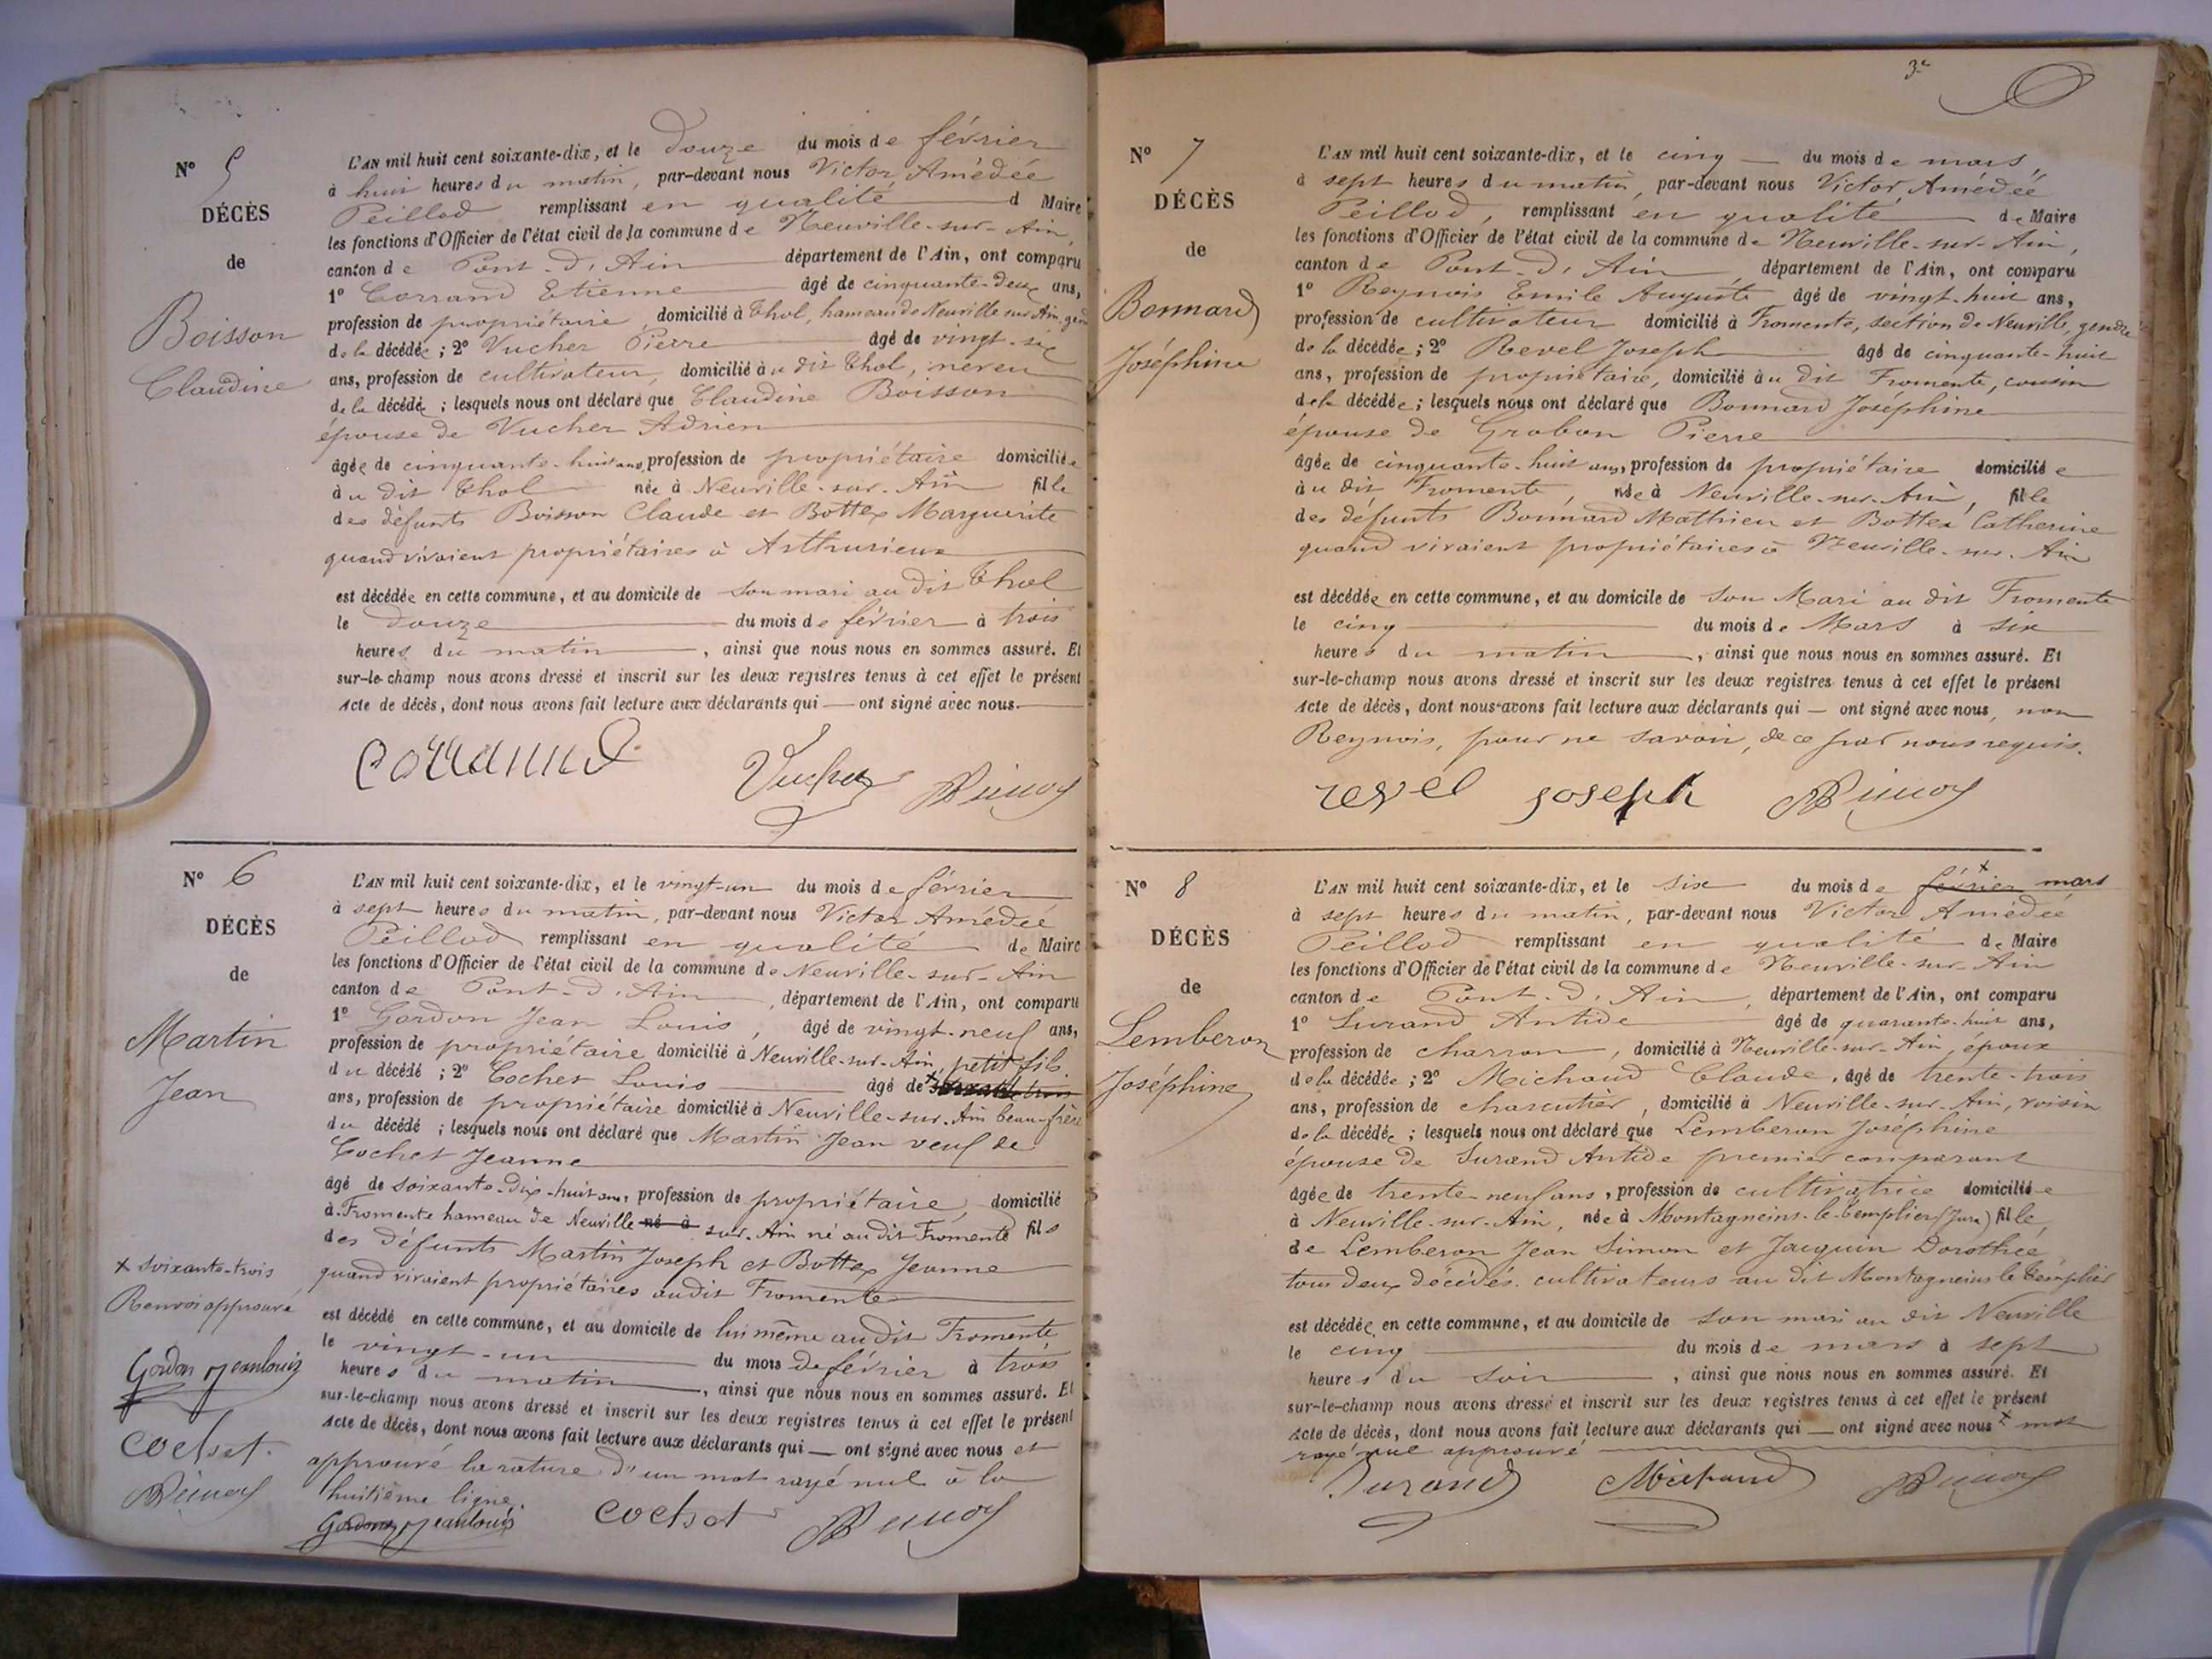 N° 5
DÉCÈS
de
Boisson
Claudine
L'AN mil huit cent soixante-dix, et le douze du mois de février
à huit heures du matin, par-devant nous Victor Amédée
Peillod remplissant en qualité d Maire
les fonctions d'Officier de l'état civil de la commune de Neuville-sur-Ain,
canton de Pont-d'Ain département de l'Ain, ont comparu
1° Corrand Etienne âgé de cinquante-deux ans,
profession de propriétaire domicilié à Thol, hameau de Neuville sur Ain, gend
de la décédée ; 2° Vucher Pierre âgé de vingt-six
ans, profession de cultivateur, domicilié au dit Thol, neveu
de la décédée ; lesquels nous ont déclaré que Claudine Boisson
épouse de Vucher Adrien
âgée de cinquante-huit ans, profession de propriétaire domiciliée
au dit Thol née à Neuville-sur-Ain fille
des défunts Boisson Claude et Bottex Marguerite
quand vivaient propriétaires à Arthurieux
est décédée en cette commune, et au domicile de son mari au dit Thol
le douze du mois de février à trois
heures du matin, ainsi que nous nous en sommes assuré. Et
sur-le-champ nous avons dressé et inscrit sur les deux registres tenus à cet effet le présent
Acte de décès, dont nous avons fait lecture aux déclarants qui ont signé avec nous.
Corrand Vucher
N° 6
DÉCÈS
de
Martin
Jean
L'AN mil huit cent soixante-dix, et le vingt-un du mois de février
à sept heures du matin, par-devant nous Victor Amédée
Peillod remplissant en qualité de Maire
les fonctions d'Officier de l'état civil de la commune de Neuville-sur-Ain
canton de Pont-d'Ain, département de l'Ain, ont comparu
1° Gordon Jean Louis, âgé de vingt-neuf ans,
profession de propriétaire domicilié à Neuville-sur-Ain, petit fils
du décédé ; 2° Cochet Louis âgé de x
ans, profession de propriétaire domicilié à Neuville-sur-Ain beau-frère
du décédé ; lesquels nous ont déclaré que Martin Jean veuf de
Cochet Jeanne
âgé de soixante-dix-huit ans, profession de propriétaire, domicilié
à Fromente hameau de Neuville né à sur-Ain né au dit Fromente fils
des défunts Martin Joseph et Bottex Jeanne
quand vivaient propriétaires audit Fromente
est décédé en cette commune, et au domicile de lui même au dit Fromente
le vingt-un du mois de février à trois
heures du matin, ainsi que nous nous en sommes assuré. Et
sur-le-champ nous avons dressé et inscrit sur les deux registres tenus à cet effet le présent
Acte de décès, dont nous avons fait lecture aux déclarants qui ont signé avec nous et
approuvé la rature d'un mot rayé nul à la
huitième ligne.
Gordon jeanlouis cochet
x soixante-trois
Renvoi approuvé
Gordon jeanlouis
cochet
3e
N° 7
DÉCÈS
de
Bonnard
Joséphine
L'AN mil huit cent soixante-dix, et le cinq du mois de mars,
à sept heures du matin, par-devant nous Victor Amédée
Peillod, remplissant en qualité de Maire
les fonctions d'Officier de l'état civil de la commune de Neuville-sur-Ain,
canton de Pont-d'Ain, département de l'Ain, ont comparu
1° Reynois Emile Auguste âgé de vingt-huit ans,
profession de cultivateur domicilié à Fromente, section de Neuville, gendre
de la décédée ; 2° Revel Joseph âgé de cinquante-huit
ans, profession de propriétaire, domicilié au dit Fromente, cousin
de la décédée ; lesquels nous ont déclaré que Bonnard Joséphine
épouse de Grobon Pierre
âgée de cinquante-huit ans, profession de propriétaire domiciliée
au dit Fromente, née à Neuville-sur-Ain, fille
des défunts Bonnard Mathieu et Bottex Catherine
quand vivaient propriétaires à Neuville-sur-Ain
est décédée en cette commune, et au domicile de son Mari au dit Fromente
le cinq du mois de Mars à six
heures du matin, ainsi que nous nous en sommes assuré. Et
sur-le-champ nous avons dressé et inscrit sur les deux registres tenus à cet effet le présent
Acte de décès, dont nous avons fait lecture aux déclarants qui ont signé avec nous, non
Reynois, pour ne savoir, de ce par nous requis.
revel joseph
N° 8
DÉCÈS
de
Lemberon
Joséphine
L'AN mil huit cent soixante-dix, et le six du mois de x février mars
à sept heures du matin, par-devant nous Victor Amédée
Peillod remplissant en qualité de Maire
les fonctions d'Officier de l'état civil de la commune de Neuville-sur-Ain
canton de Pont-d'Ain, département de l'Ain, ont comparu
1° Durand Antide âgé de quarante-huit ans,
profession de charron, domicilié à Neuville-sur-Ain, époux
de la décédée ; 2° Michaud Claude, âgé de trente-trois
ans, profession de charcutier, domicilié à Neuville-sur-Ain, voisin
de la décédée ; lesquels nous ont déclaré que Lemberon Joséphine
épouse de Durand Antide premier comparant
âgée de trente-neuf ans, profession de cultivatrice domiciliée
à Neuville-sur-Ain, née à Montagneins-le-Templier (Jura) fille,
de Lemberon Jean Simon et Jacquin Dorothée
tous deux décédés cultivateurs au dit Montagneins le Templier
est décédée en cette commune, et au domicile de son mari au dit Neuville
le cinq du mois de mars à sept
heures du soir, ainsi que nous nous en sommes assuré. Et
sur-le-champ nous avons dressé et inscrit sur les deux registres tenus à cet effet le présent
Acte de décès, dont nous avons fait lecture aux déclarants qui ont signé avec nous x mot
rayé nul approuvé
Durand Michaud